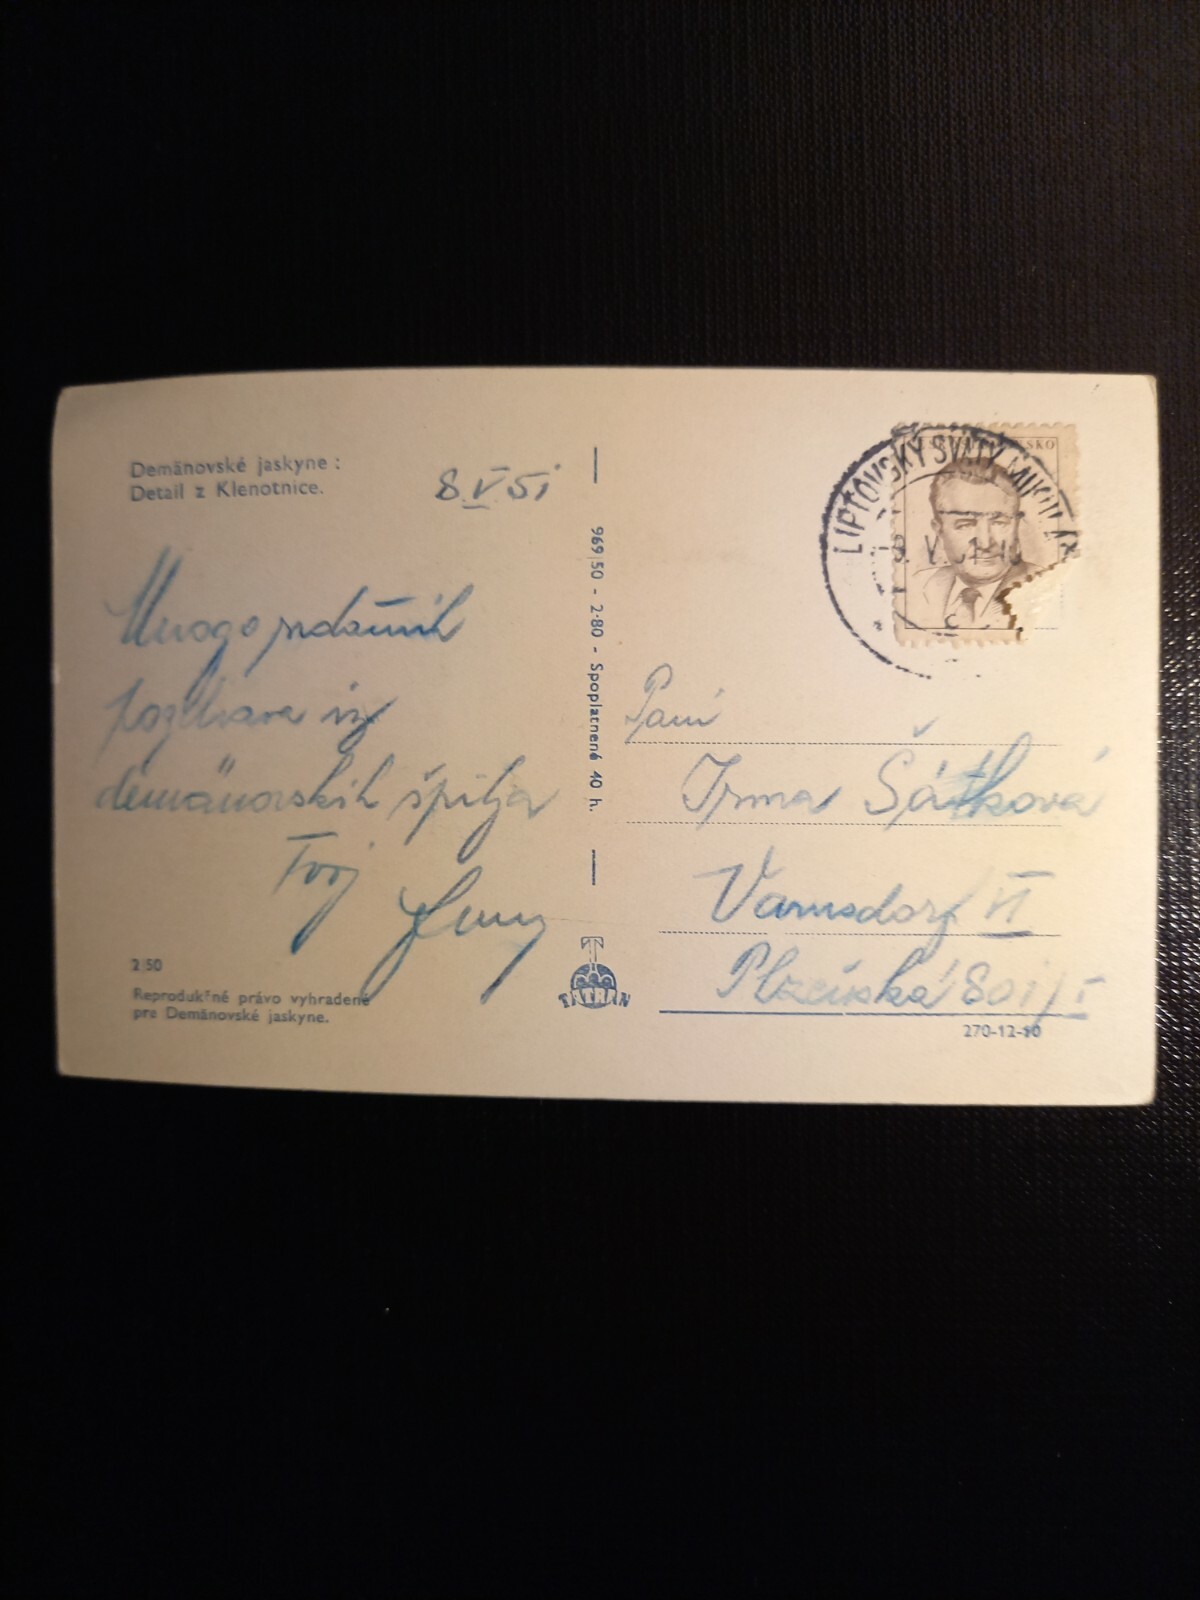 Demänovské jaskyne :
Detail z Klenotnice.
8 V 51
Mnogo srdačnih
pozdrava iz
demänovskih špilja
Tvoj
969 50 - 2·80 - Spoplatnené 40 h.
TATRAN
2 50
Reprodukčné právo vyhradené
pre Demänovské jaskyne.
LIPTOVSKÝ SVÄTÝ MIKULÁŠ
8. V. 51
c
Pani
Irma Šátková
Varnsdorf VI
Plzeňská
270-12-10